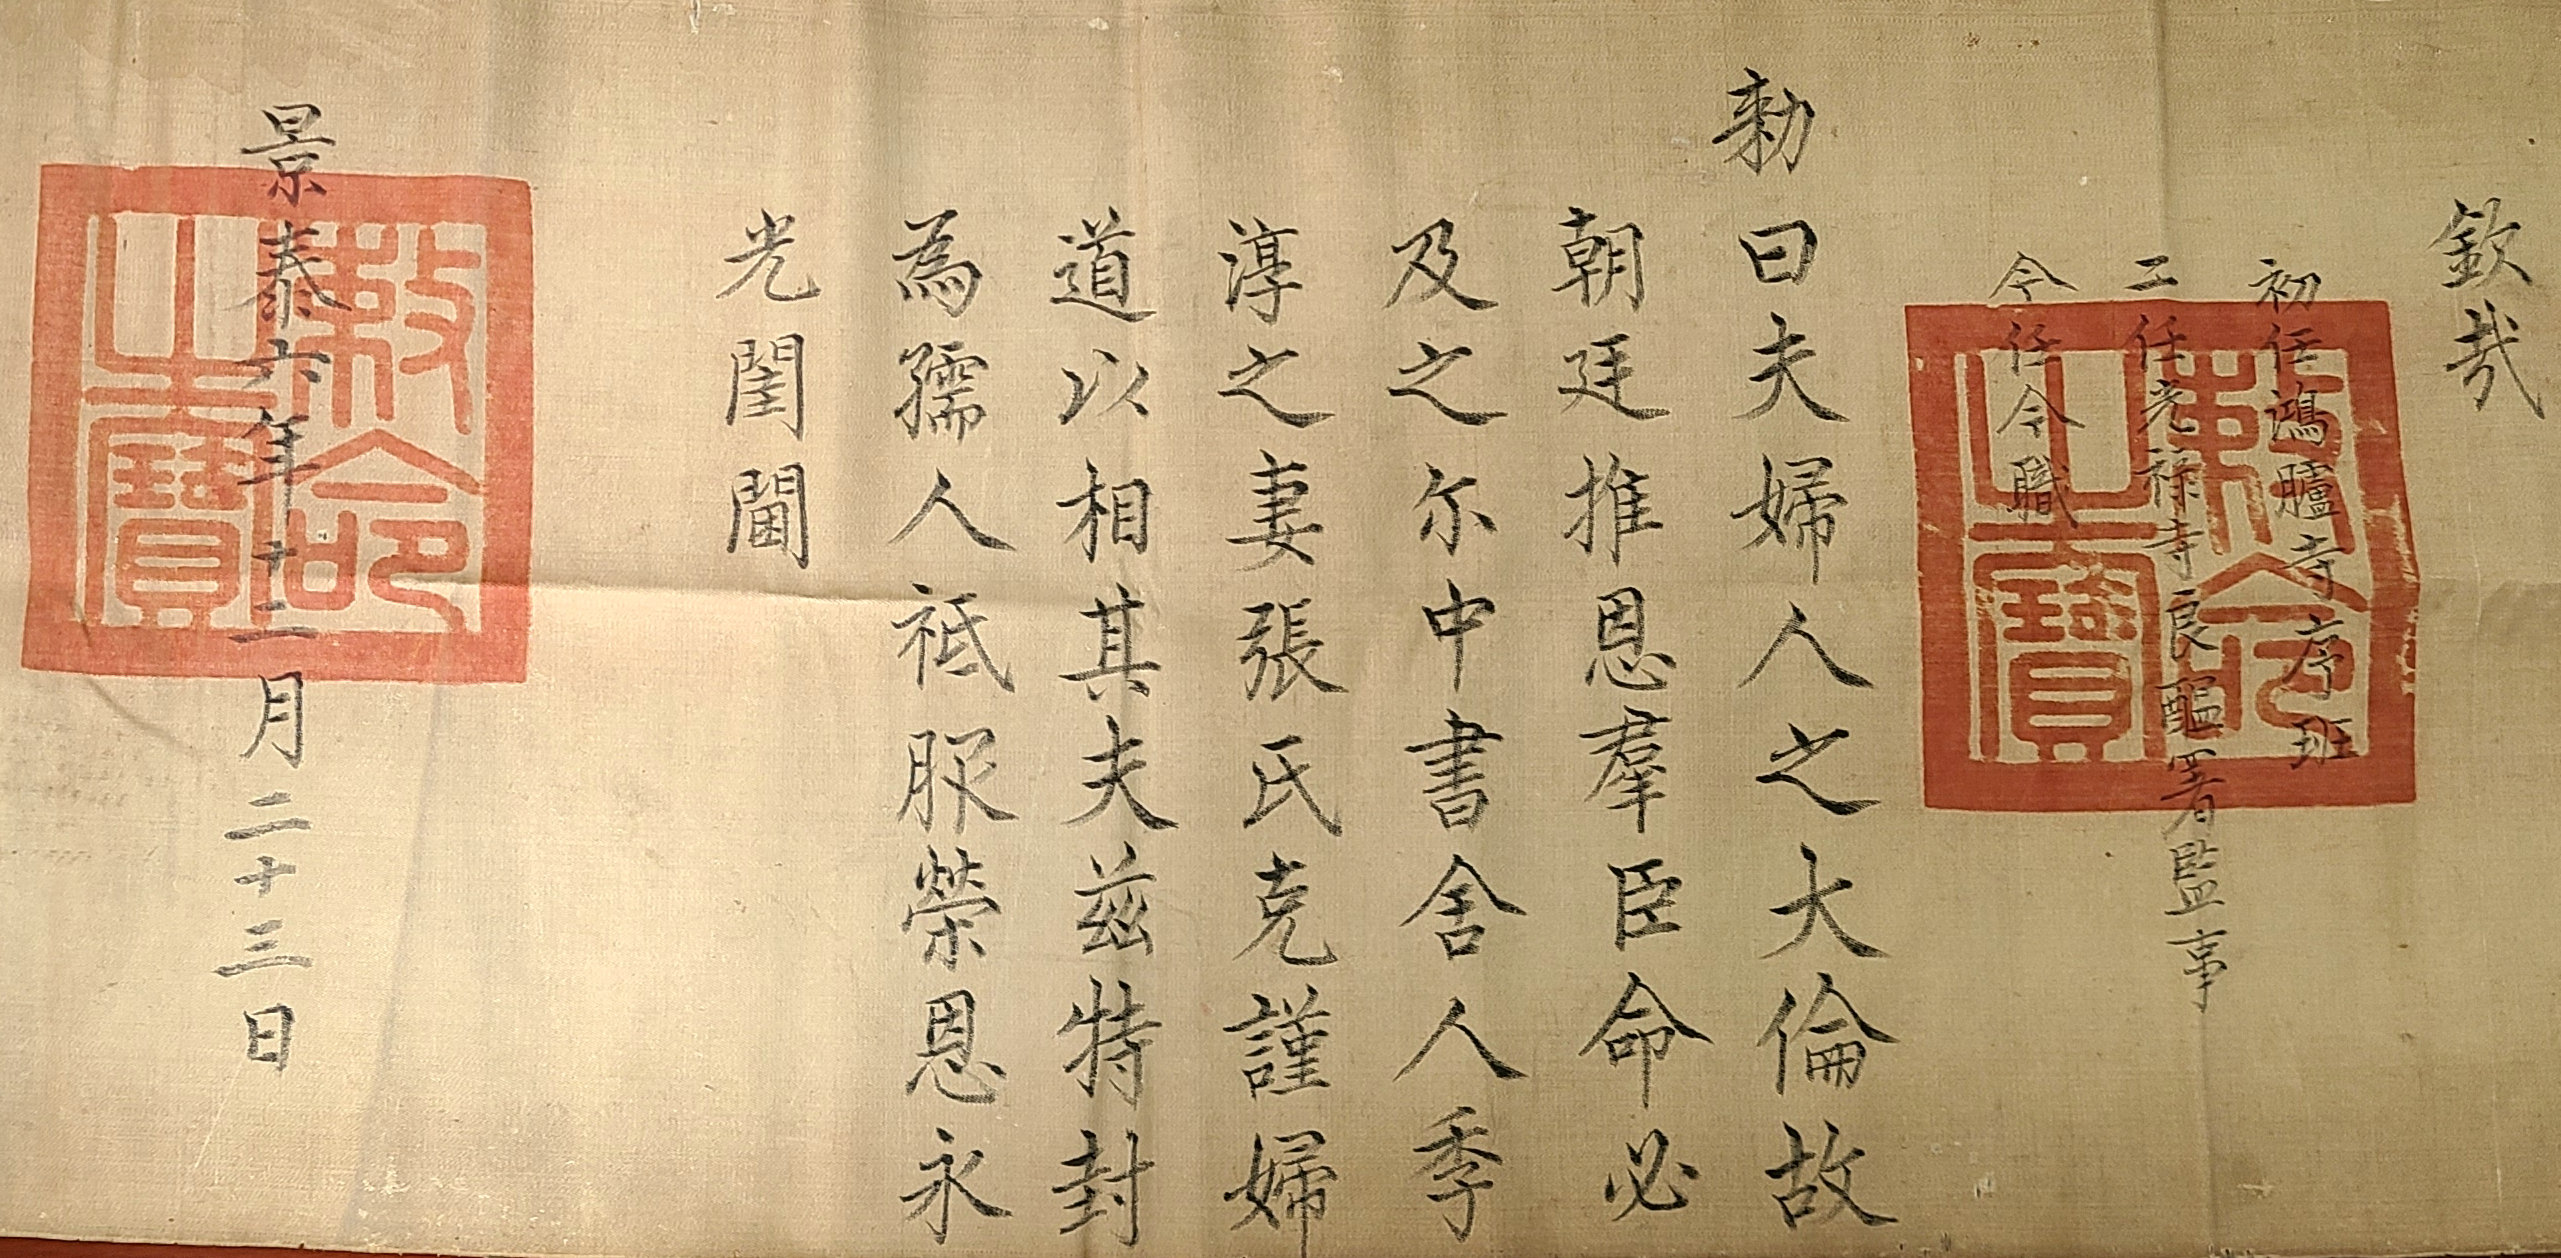 欽哉
初任鴻臚寺序班
二任光祿寺良醞署監事
今任今職
勑曰夫婦人之大倫故
朝廷推恩羣臣命必
及之尔中書舍人季
淳之妻張氏克謹婦
道以相其夫茲特封
為孺人祗服榮恩永
光閨閫
景泰六年十二月二十三日
敕命之寶
敕命之寶